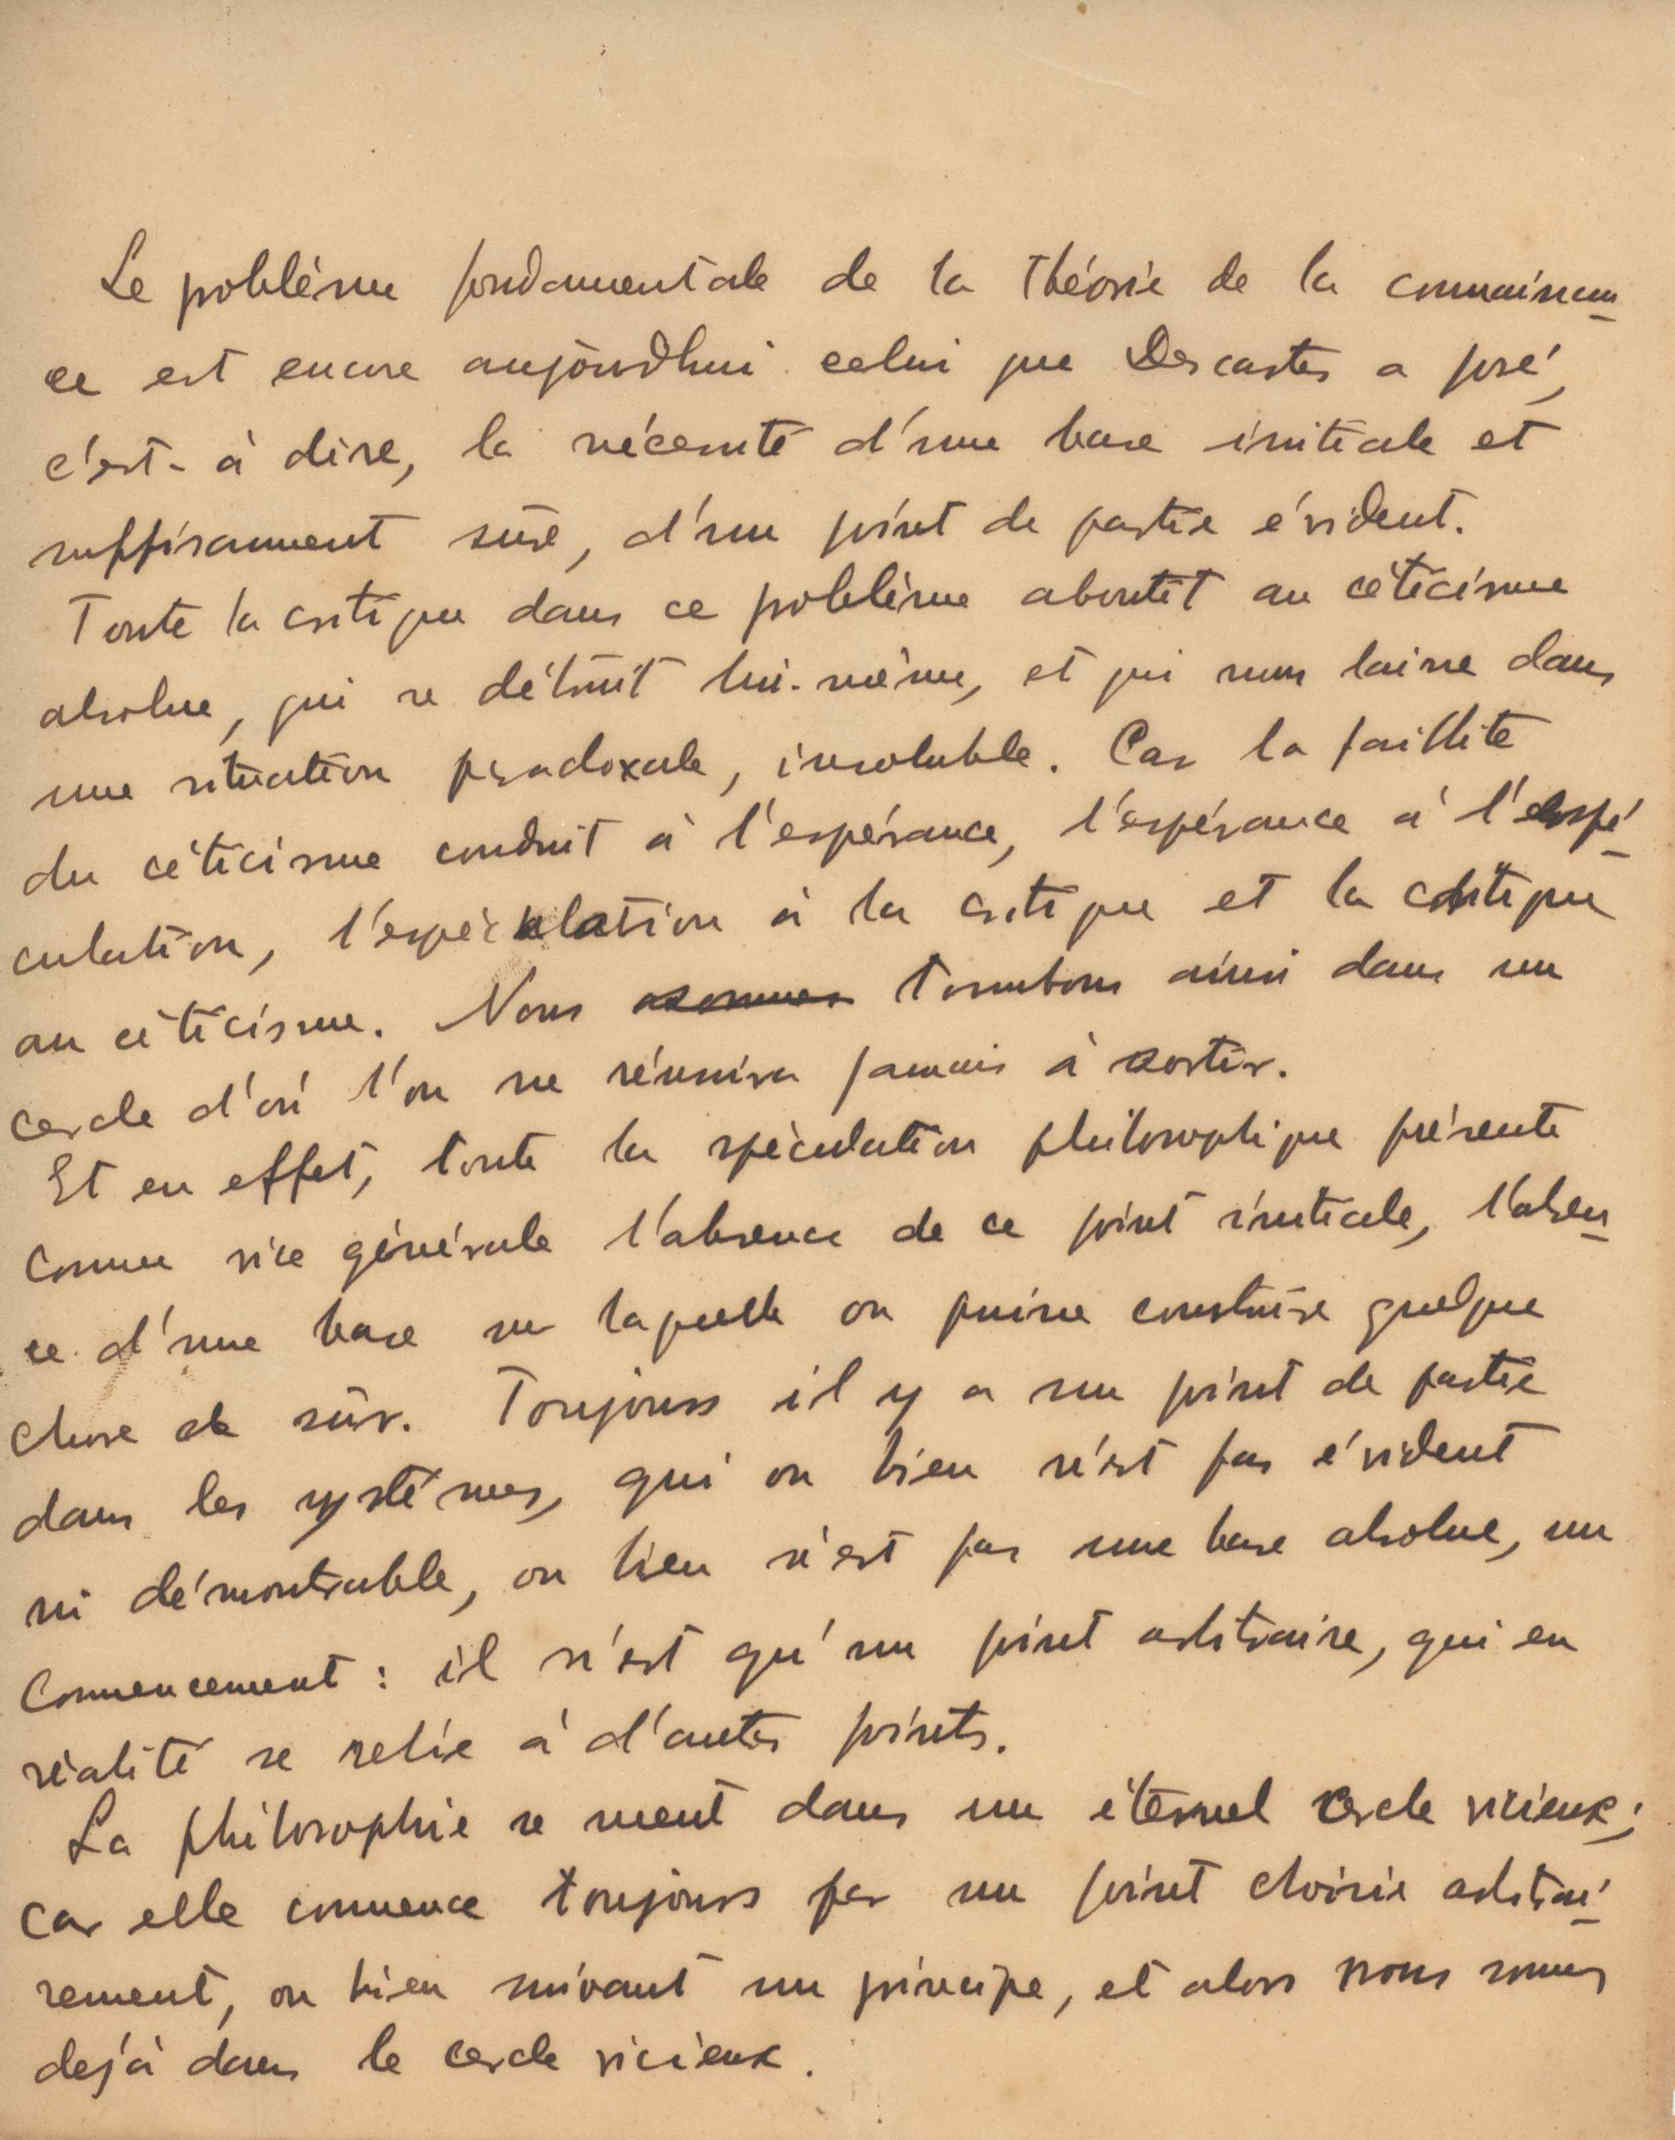 Le problème fondamentale de la théorie de la connaissan-
ce est encore aujourdhui celui que Descartes a posé,
c'est-à dire, la nécessité d'une base initiale et
suffisamment sûre, d'un point de partie évident.
Toute la critique dans ce problème aboutit au céticisme
absolue, qui se détruit lui-même, et qui nous laisse dans
une situation paradoxale, insoluble. Car la faillite
du céticisme conduit à l'espérance, l'espérance à l'espé-
culation, l'espéculation à la critique et la critique
au céticisme. Nous tombons ainsi dans un
cercle d'où l'on ne réussira jamais à sortir.
Et en effet, toute la spéculation philosophique présente
comme vice générale l'absence de ce point initiale, l'absen-
ce d'une base sur laquelle on puisse construire quelque
chose de sûr. Toujours il y a un point de partie
dans les systémes, qui ou bien n'est pas évident
ni démontrable, ou bien n'est pas une base absolue, un
commencement : il n'est qu'un point arbitraire, qui en
réalité se relie à d'autres points.
La philosophie se meut dans un éternel cercle vicieux;
car elle commence toujours par un point choisie arbitrai-
rement, ou bien suivant un principe, et alors nous sommes
dejà dans le cercle vicieux.